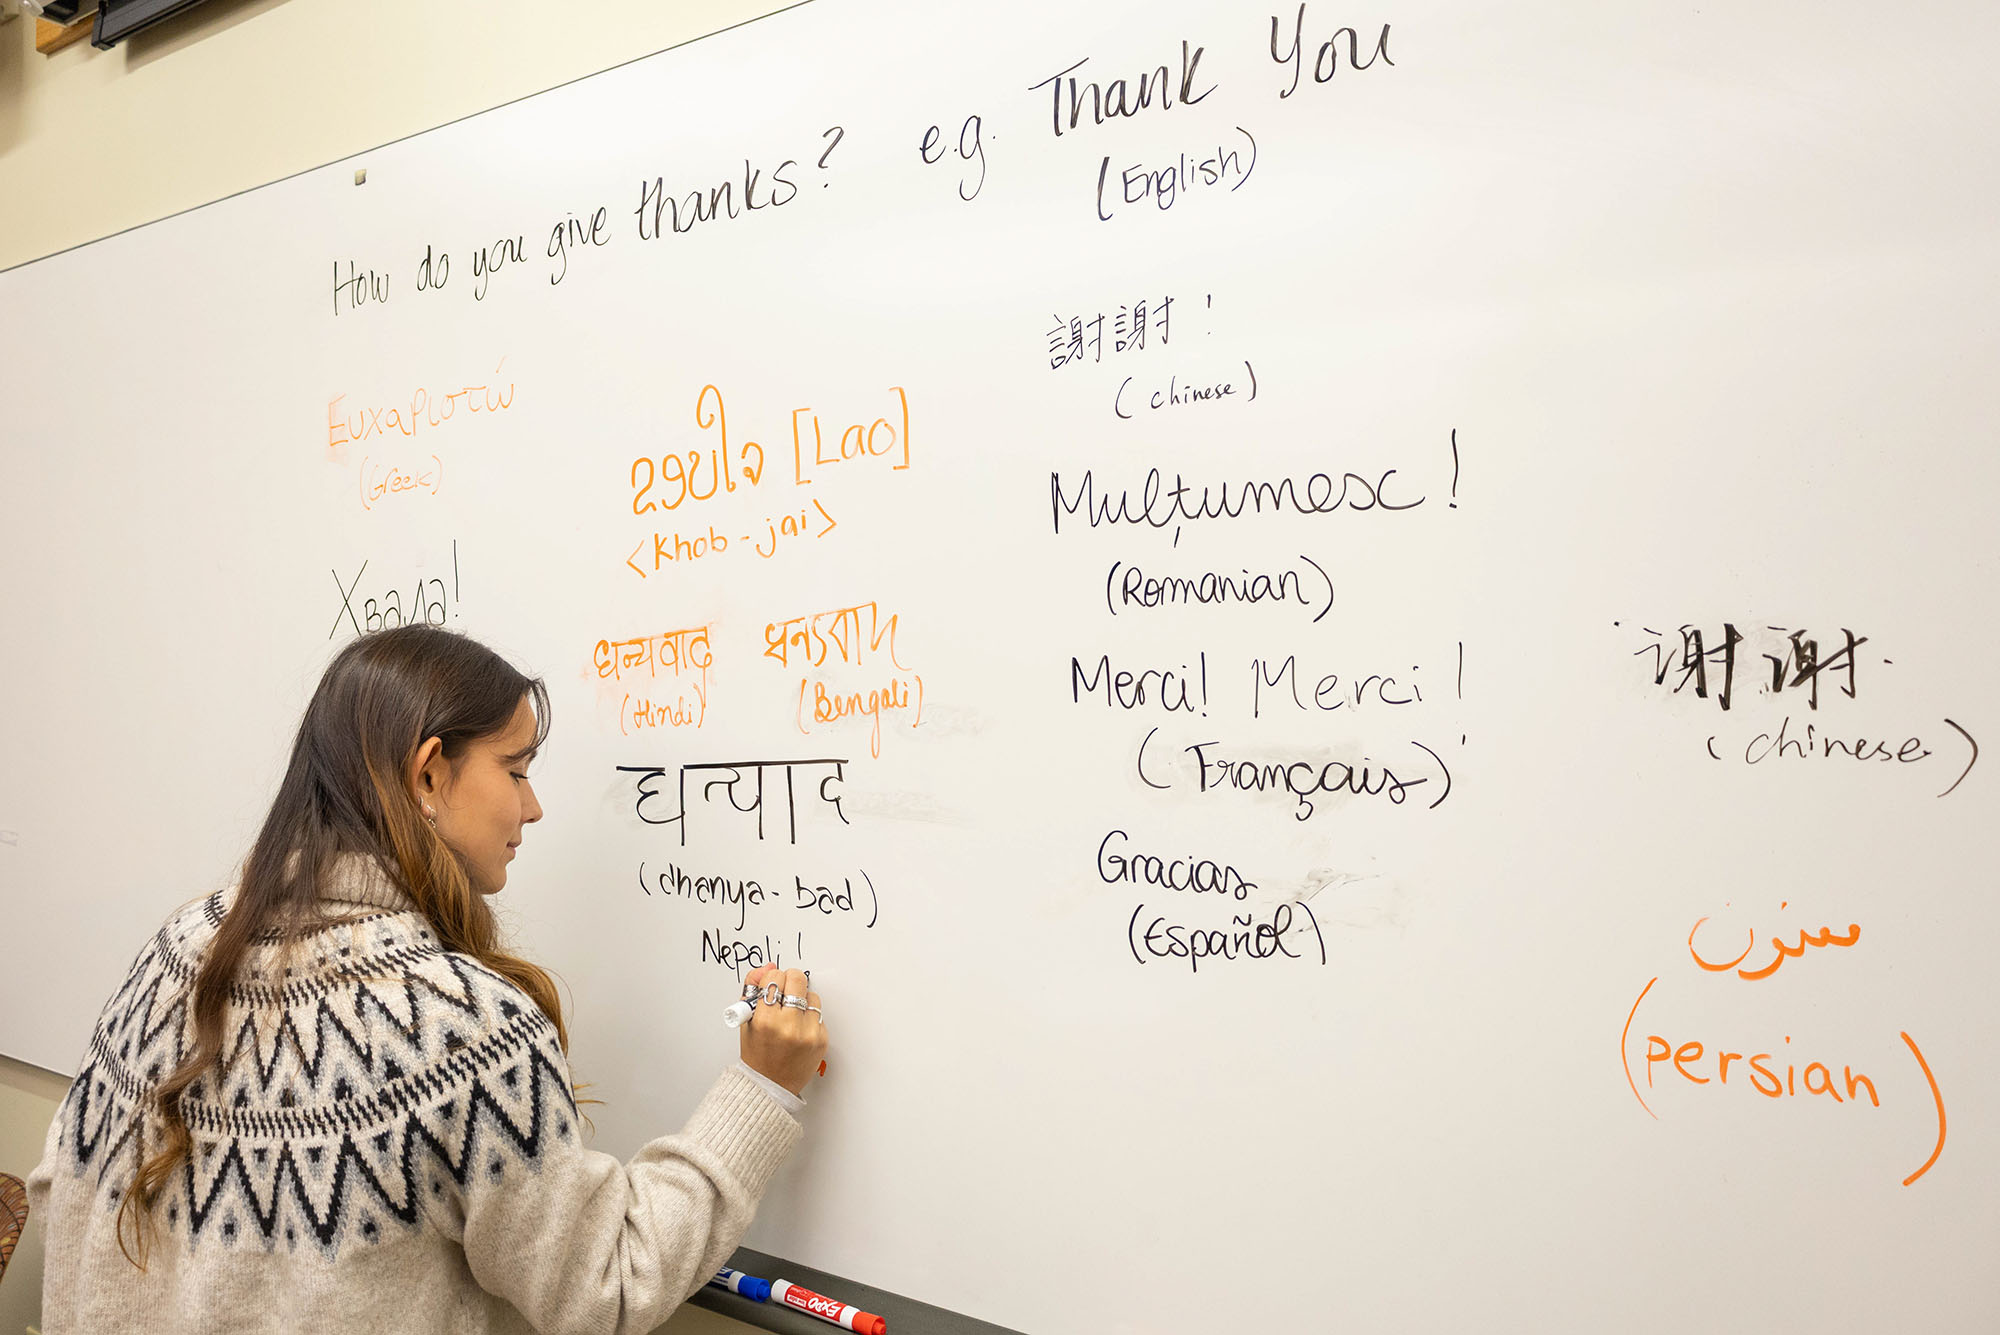 How do you give thanks? e.g. Thank You
(English)
Ευχαριστώ
(Greek)
Хвала!
ຂອບໃຈ [Lao]
<khob-jai>
धन्यवाद
(Hindi)
ধন্যবাদ
(Bengali)
(dhanya-bad)
Nepali!
謝謝!
(chinese)
Mulțumesc!
(Romanian)
Merci! Merci!
(Français)
Gracias
(Español)
谢谢.
(chinese)
(persian)
EXPO